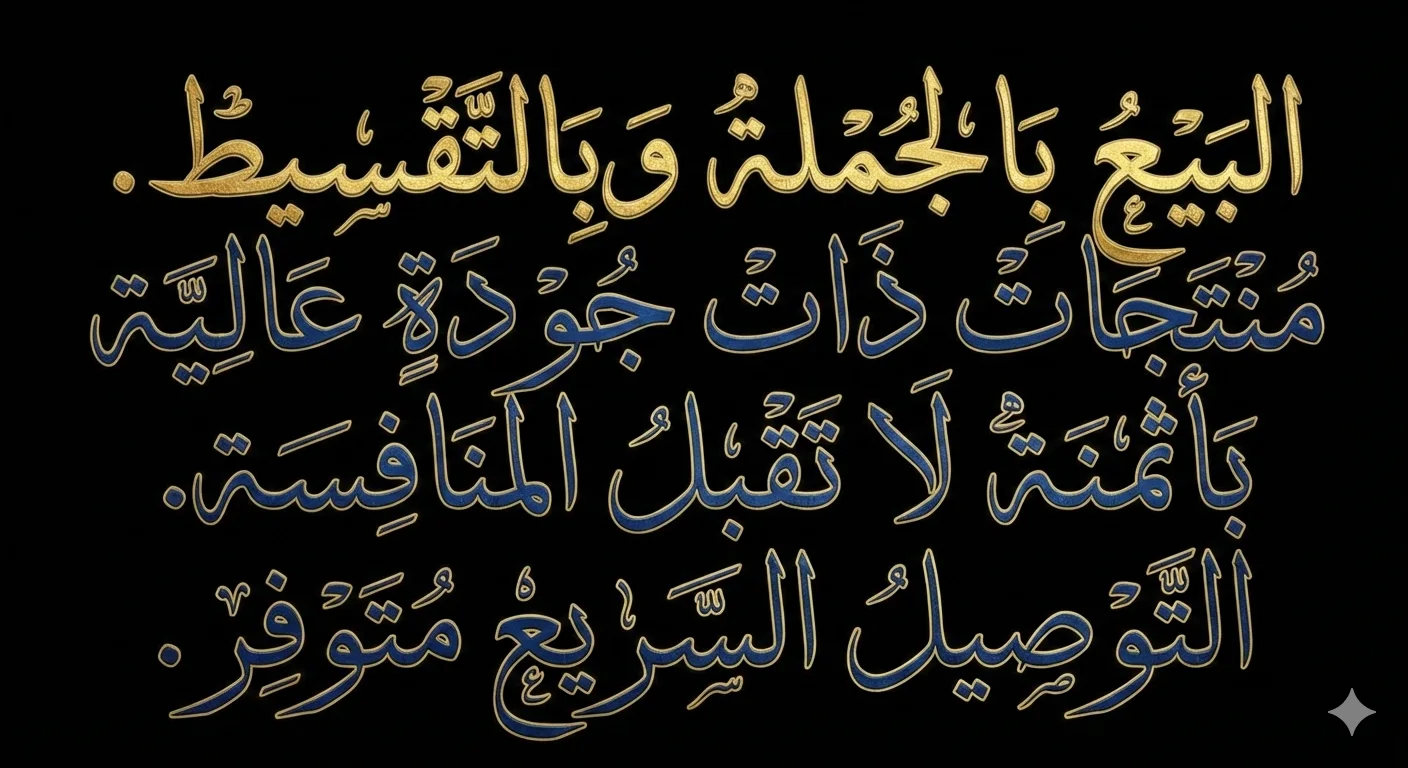 البَيْعُ بَالجُمْلةُ وَبِالتَّقْسِيطْ.
مُنْتَجَاتْ ذَاتْ جُوْدَةٍ عَالِيَّة
بَأَثْمنَةْ لَا تَقْبلُ المنَافِسَة.
التَّوْصِيلُ السَّرِيعْ مُتَوْفِرْ.